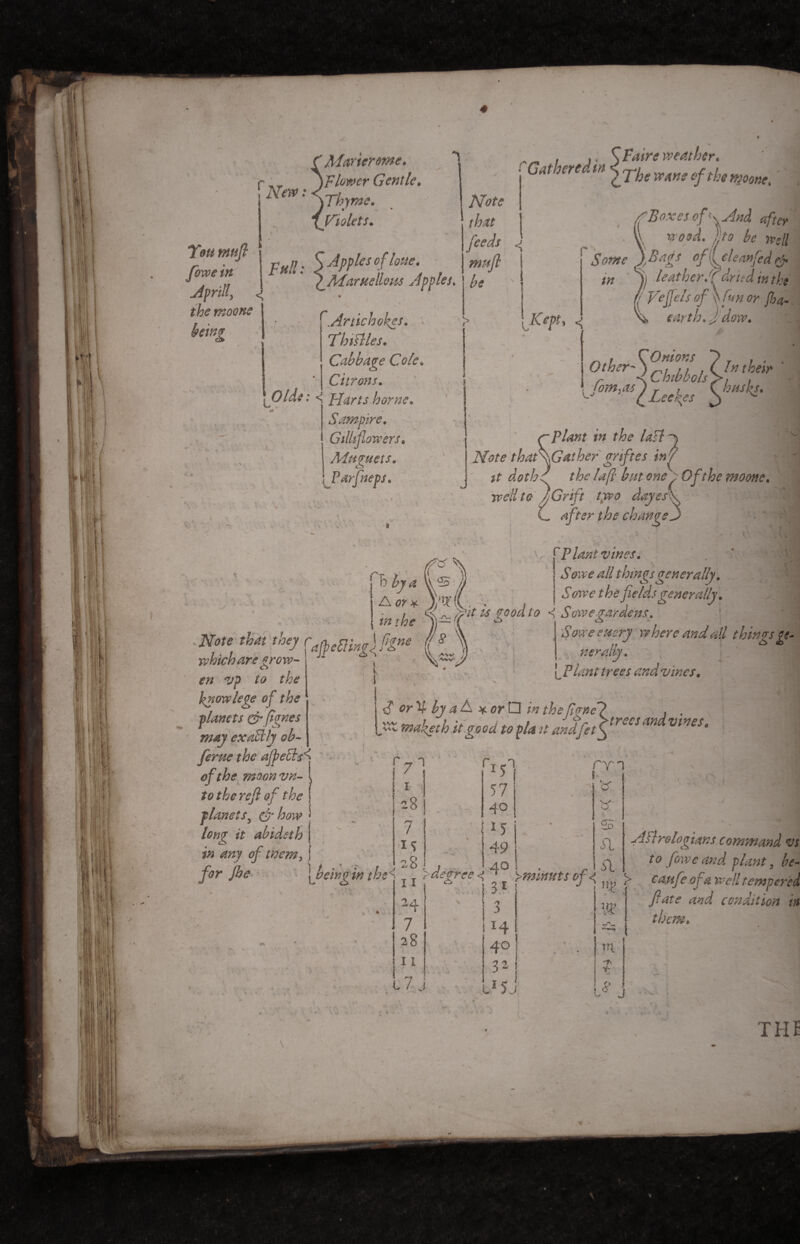 You must
sowe in
Aprill,
the moone
being
New:
Marierome.
Flower Gentle.
Thyme.
Violets.
Full:
Apples of loue.
Maruellous Apples.
Olde:
Artichokes.
Thistles.
Cabbage Cole.
Citrons.
Harts horne.
Sampire.
Gilliflowers.
Muguets.
Parsneps.
Note
that
seeds
must
be
Gathered in
Faire weather.
The wane of the moone.
Kept,
Some
in
Boxes of
wood.
Bags of
leather.
Vessels of
earth.
And after
to be well
cleansed &
dried in the
sun or sha-
dow.
Other-
som, as
Onions
Chibbols
Leekes
In their
husks.
Note that
it doth
well to
Plant in the last
Gather griftes in
the last but one
Grift two dayes
after the change
Of the moone.
Note that they
which are grow-
en vp to the
knowlege of the
planets & signes
may exactly ob-
serue the aspects
of the moon vn-
to the rest of the
planets, & how
long it abideth
in any of them,
for she
aspecting
♄ by a
△ or ⚹
in the
signe
♉
♋
♍
♎
♑
♒
it is good to
Plant vines.
Sowe all things generally.
Sowe the fields generally.
Sowe gardens.
Sowe euery where and all things ge-
nerally.
Plant trees and vines.
♂ or ♃ by a △ ⚹ or □ in the signe
♒ maketh it good to plāt and set
trees and vines.
being in the
7
1
28
7
15
28
11
24
7
28
11
7
degree
15
57
40
15
49
40
31
3
14
40
32
15
minuts of
♈
♉
♉
♋
♌
♌
♍
♍
♎
♏
♐
♑
Astrologians command vs
to sowe and plant, be-
cause of a well tempered
state and condition in
them.
THE